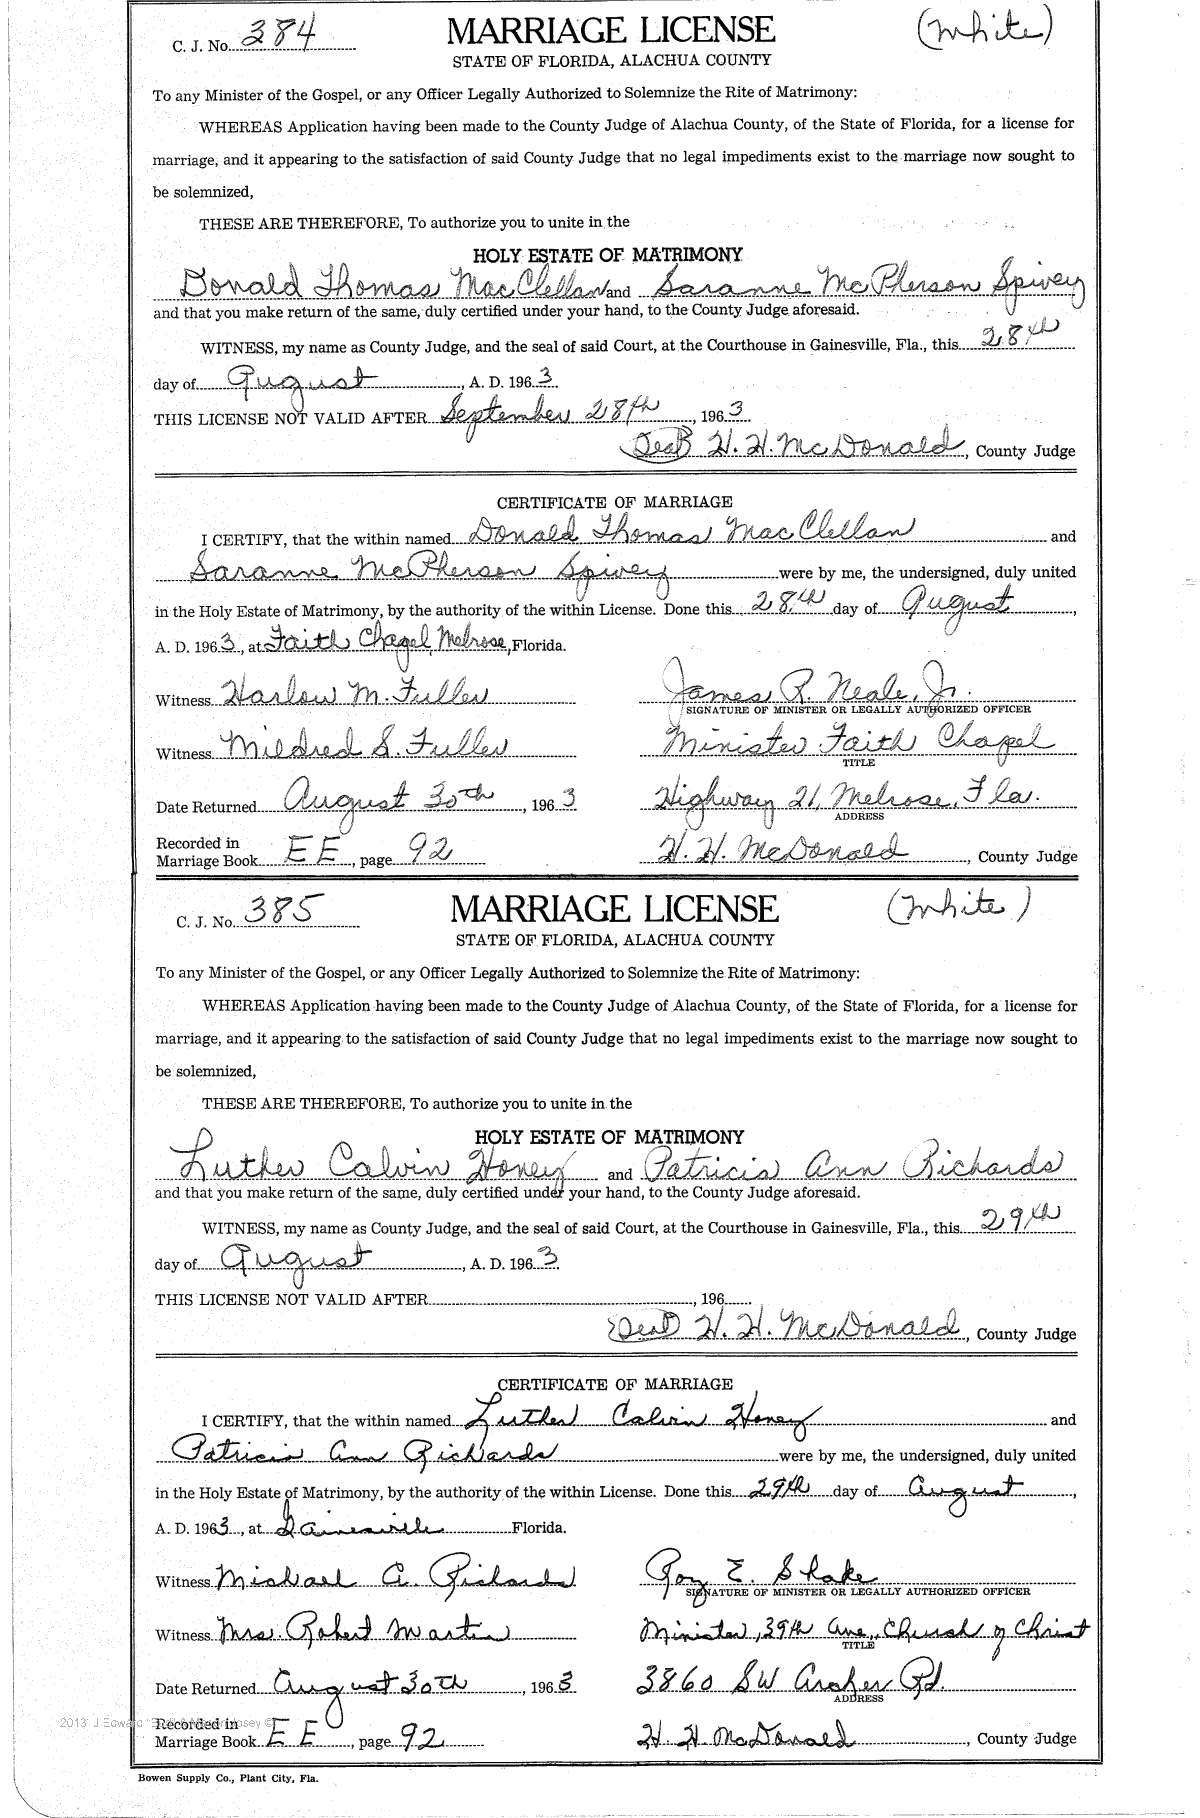 C. J. No. 384 MARRIAGE LICENSE (White)
STATE OF FLORIDA, ALACHUA COUNTY
To any Minister of the Gospel, or any Officer Legally Authorized to Solemnize the Rite of Matrimony:
WHEREAS Application having been made to the County Judge of Alachua County, of the State of Florida, for a license for
marriage, and it appearing to the satisfaction of said County Judge that no legal impediments exist to the marriage now sought to
be solemnized,
THESE ARE THEREFORE, To authorize you to unite in the
HOLY ESTATE OF MATRIMONY
Donald Thomas MacClellan and Saranne McPherson Spivey
and that you make return of the same, duly certified under your hand, to the County Judge aforesaid.
WITNESS, my name as County Judge, and the seal of said Court, at the Courthouse in Gainesville, Fla., this 28th
day of August, A. D. 1963
THIS LICENSE NOT VALID AFTER September 28th, 1963
(Seal) H. H. McDonald, County Judge
CERTIFICATE OF MARRIAGE
I CERTIFY, that the within named Donald Thomas MacClellan and
Saranne McPherson Spivey were by me, the undersigned, duly united
in the Holy Estate of Matrimony, by the authority of the within License. Done this 28th day of August,
A. D. 1963, at Faith Chapel, Melrose, Florida.
Witness Harlow M. Fuller James R. Neale, Jr.
SIGNATURE OF MINISTER OR LEGALLY AUTHORIZED OFFICER
Witness Mildred S. Fuller Minister Faith Chapel
TITLE
Date Returned August 30th, 1963 Highway 21, Melrose, Fla.
ADDRESS
Recorded in
Marriage Book EE, page 92 H. H. McDonald, County Judge
C. J. No. 385 MARRIAGE LICENSE (White)
STATE OF FLORIDA, ALACHUA COUNTY
To any Minister of the Gospel, or any Officer Legally Authorized to Solemnize the Rite of Matrimony:
WHEREAS Application having been made to the County Judge of Alachua County, of the State of Florida, for a license for
marriage, and it appearing to the satisfaction of said County Judge that no legal impediments exist to the marriage now sought to
be solemnized,
THESE ARE THEREFORE, To authorize you to unite in the
HOLY ESTATE OF MATRIMONY
Luther Calvin Honey and Patricia Ann Richards
and that you make return of the same, duly certified under your hand, to the County Judge aforesaid.
WITNESS, my name as County Judge, and the seal of said Court, at the Courthouse in Gainesville, Fla., this 29th
day of August, A. D. 1963
THIS LICENSE NOT VALID AFTER, 196
(Seal) H. H. McDonald, County Judge
CERTIFICATE OF MARRIAGE
I CERTIFY, that the within named Luther Calvin Honey and
Patricia Ann Richards were by me, the undersigned, duly united
in the Holy Estate of Matrimony, by the authority of the within License. Done this 29th day of August,
A. D. 1963, at Gainesville Florida.
Witness Michael A. Richards Roy E. Shake
SIGNATURE OF MINISTER OR LEGALLY AUTHORIZED OFFICER
Witness Mrs. Robert Martin Minister, 39th Ave., Church of Christ
TITLE
Date Returned August 30th, 1963 3860 SW Archer Rd.
ADDRESS
2013 J Edward
Recorded in
Marriage Book EE, page 92 H. H. McDonald, County Judge
Bowen Supply Co., Plant City, Fla.